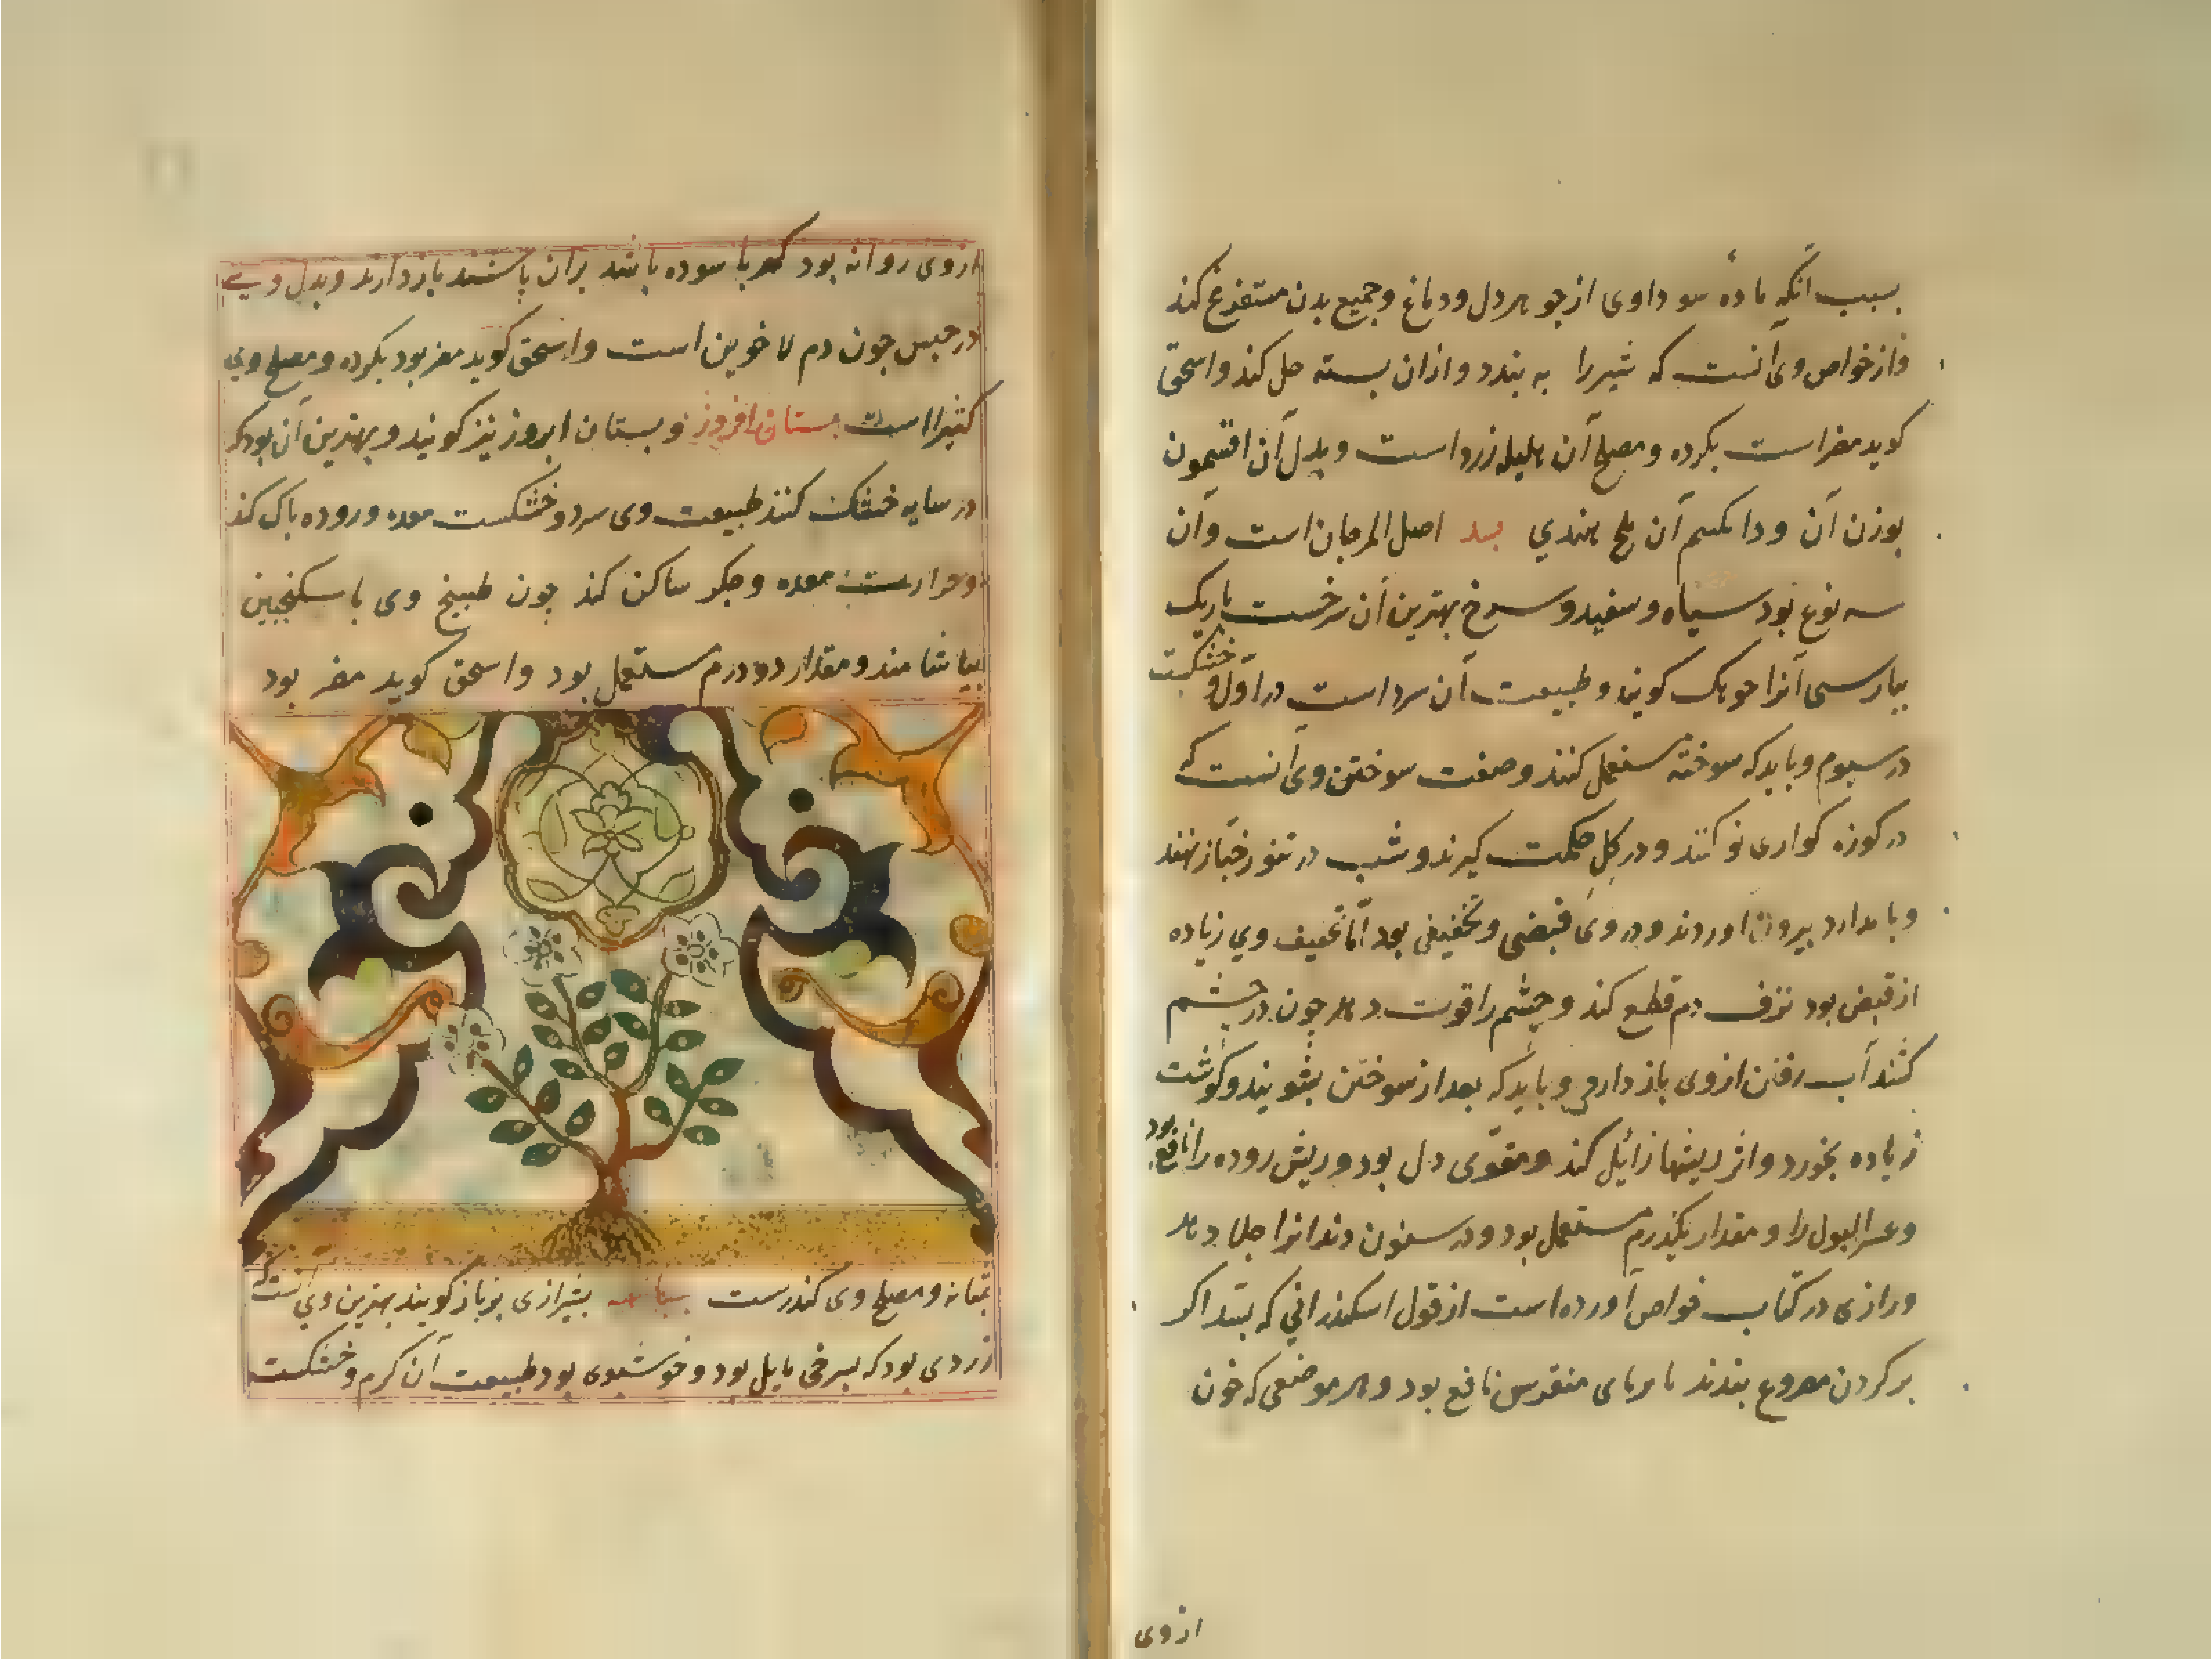 بسبب انکه مادهٔ سوداوی از جوهر دل و دماغ و جمیع بدن مستفرغ کند
و از خواص وی آنست که شیر را به بندد و از ان بسته حل کند و اسحق
کوید مضر است بکرده و مصلح آن هلیله زرد است و بدل آن افتیمون
بوزن آن و دانکیم آن ملح هندي بسد اصل المرجان است و آن
سه نوع بود سیاه و سفید و سرخ بهترین آن سرخست باریک
بپارسی آنرا خوهک کویند و طبیعت آن سرد است در اول و خشکست
در سیوم و باید که سوخته مستعمل کنند و صفت سوختن وی آنست که
در کوزه کواری نو کنند و در کِل حکمت کیرند و شب در تنور خبّاز نهند
و بامداد بیرون اورند و در وی قبضی و تخفیفی بود امّا تخفیف وي زیاده
از قبض بود نزف دم قطع کند و چشم را قوت دهد چون در چشم
کشند آب رفتن از وی باز دارد و باید که بعد از سوختن بشویند و کوشت
زیاده بخورد و اثر ریشها زائل کند و مقوّی دل بود و ریش روده را نافع بود
و عسر البول را و مقدار یکدرم مستعمل بود و در سنون دندانرا جلا دهد
و رازی در کتاب خواص آورده است از قول اسکندرانی که بسّد اکر
بر کردن مصروع بندند یا بر پای منقرس نافع بود و هر موضعی که خون
ازوی
ازوی روانه بود کهربا سوده باشد بران پاشند باز دارند و بدل وے
در حبس چون دم لا خوین است و اسحق کوید مضر بود بکرده و مصلح وي
کثیرا است بستان افروز و بستان ابروز نیز کویند و بهترین آن بود که
در سایه خشک کنند طبیعت وی سرد و خشکست معده و روده پاک کند
و حرارت معده و جکر ساکن کند چون طبیخ وی با سکنجبین
بیاشامند و مقدار دو درم مستعمل بود و اسحق کوید مضر بود
بمثانه و مصلح وی کندرست بسباسه بشیرازی بزباز کویند بهترین وی آنست که
زردی بود که بسرخی مایل بود و خوشبوی بود طبیعت آن کرم و خشکست